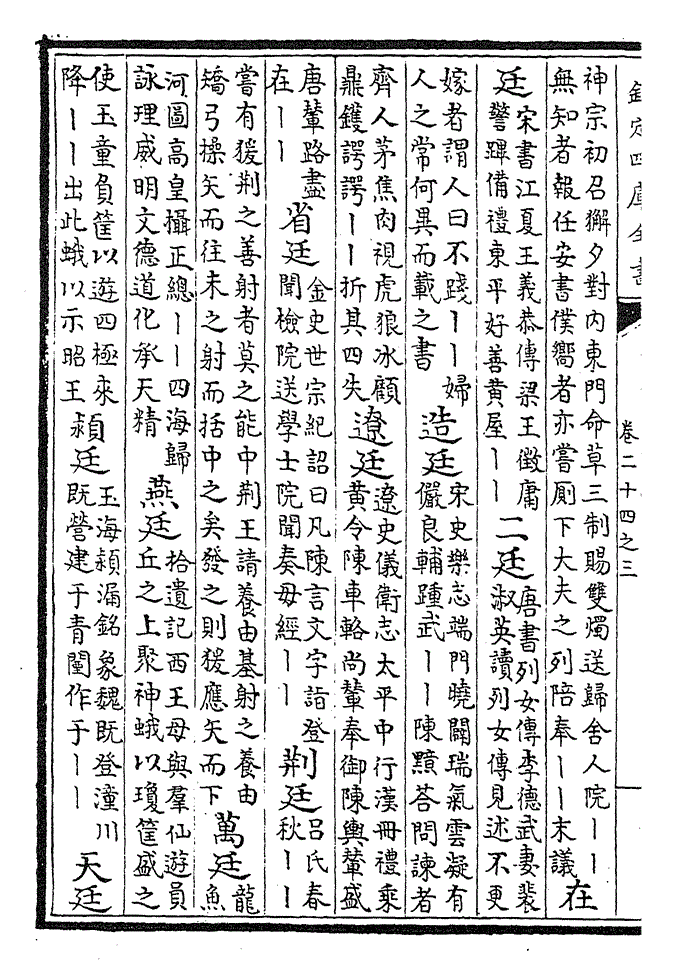 欽定四庫全書
卷二十四之三
神宗初召獬夕對内東門命草三制賜雙燭送歸舍人院——
無知者報任安書僕嚮者亦嘗厠下大夫之列陪奉——末議
在
廷
宋書江夏王義恭傳梁王徵庸
警蹕備禮東平好善黄屋——
二廷
唐書列女傳李德武妻裴
淑英讀列女傳見述不更
嫁者謂人曰不踐——婦
人之常何異而載之書
造廷
宋史樂志端門曉闢瑞氣雲凝有
儼良輔踵武——陳黷答問諫者
齊人茅焦肉視虎狼冰顧
鼎鑊諤諤——折其四失
遼廷
遼史儀衛志太平中行漢冊禮乘
黄令陳車輅尚輦奉御陳輿輦盛
唐輦路盡
在——
省廷
金史世宗紀詔曰凡陳言文字詣登
聞檢院送學士院聞奏毋經——
荆廷
吕氏春
秋——
嘗有猨荆之善射者莫之能中荆王請養由基射之養由
矯弓操矢而往未之射而括中之矣發之則猨應矢而下
萬廷
龍
魚
河圖高皇攝正總——四海歸
詠理威明文德道化承天精
燕廷
拾遺記西王母與羣仙遊員
丘之上聚神蛾以瓊筐盛之
使玉童負筐以遊四極來
降——出此蛾以示昭王
潁廷
玉海潁漏銘象魏既登潼川
既營建于青闈作于——
天廷